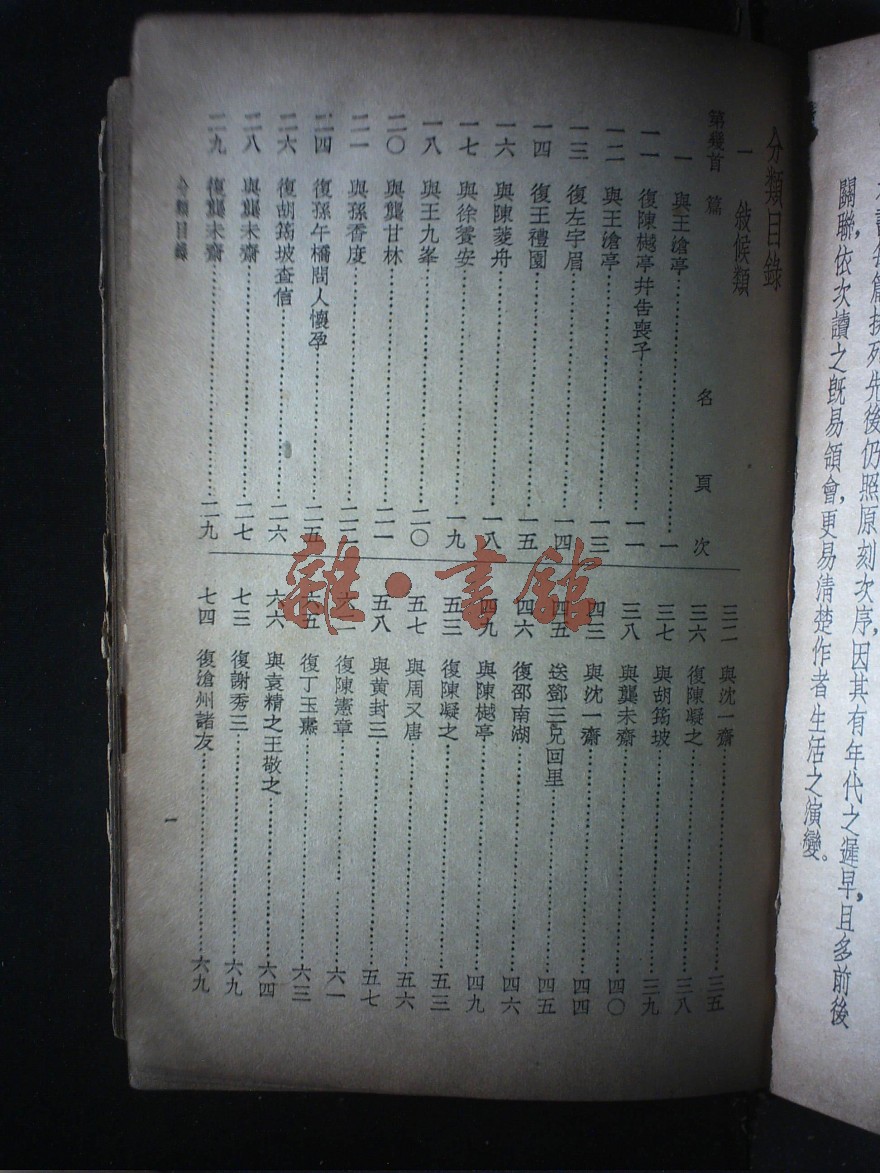 關聯,依次讀之既易領會,更易清楚作者生活之演變。
分類目錄
一 敍候類
第幾首 篇 名 頁 次
一 與王滄亭 一
一一 復陳樾亭幷告喪子 一一
一二 與王滄亭 一三
一三 復左宇眉 一四
一四 復王禮園 一五
一六 與陳菱舟 一八
一七 與徐養安 一九
一八 與王九峯 二〇
二〇 與龔甘林 二一
二一 與孫香度 二二
二四 復孫午橋問人懷孕 二五
二六 復胡筠坡查信 二六
二八 與龔未齋 二七
二九 復龔未齋 二九
三二 與沈一齋 三五
三六 復陳凝之 三八
三七 與胡筠坡 三九
三八 與龔未齋 四〇
四三 與沈一齋 四四
四五 送鄧三兄回里 四五
四六 復邵南湖 四六
四九 與陳樾亭 四九
五三 復陳凝之 五三
五七 與周又唐 五六
五八 與黃封三 五七
復陳憲章 六一
六五 復丁玉裹 六三
六六 與袁精之王敬之 六四
七三 復謝秀三 六九
七四 復滄州諸友 六九
分類目錄
一
雜·書館